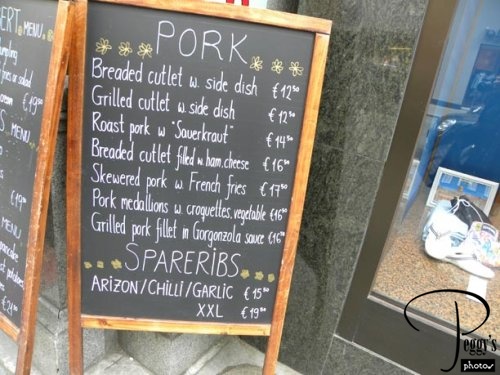 ERT MENU
€19⁵⁰
MENU
PORK
Breaded cutlet w. side dish €12⁵⁰
Grilled cutlet w. side dish €12⁵⁰
Roast pork w "Sauerkraut" €14⁵⁰
Breaded cutlet filled w. ham, cheese €16⁵⁰
Skewered pork w French fries €17⁵⁰
Pork medallions w. croquettes, vegetable €16⁵⁰
Grilled pork fillet in Gorgonzola sauce €16⁵⁰
SPARERIBS
ARIZON/CHILLI/GARLIC €15⁵⁰
XXL €19⁵⁰
Peggy's
photos